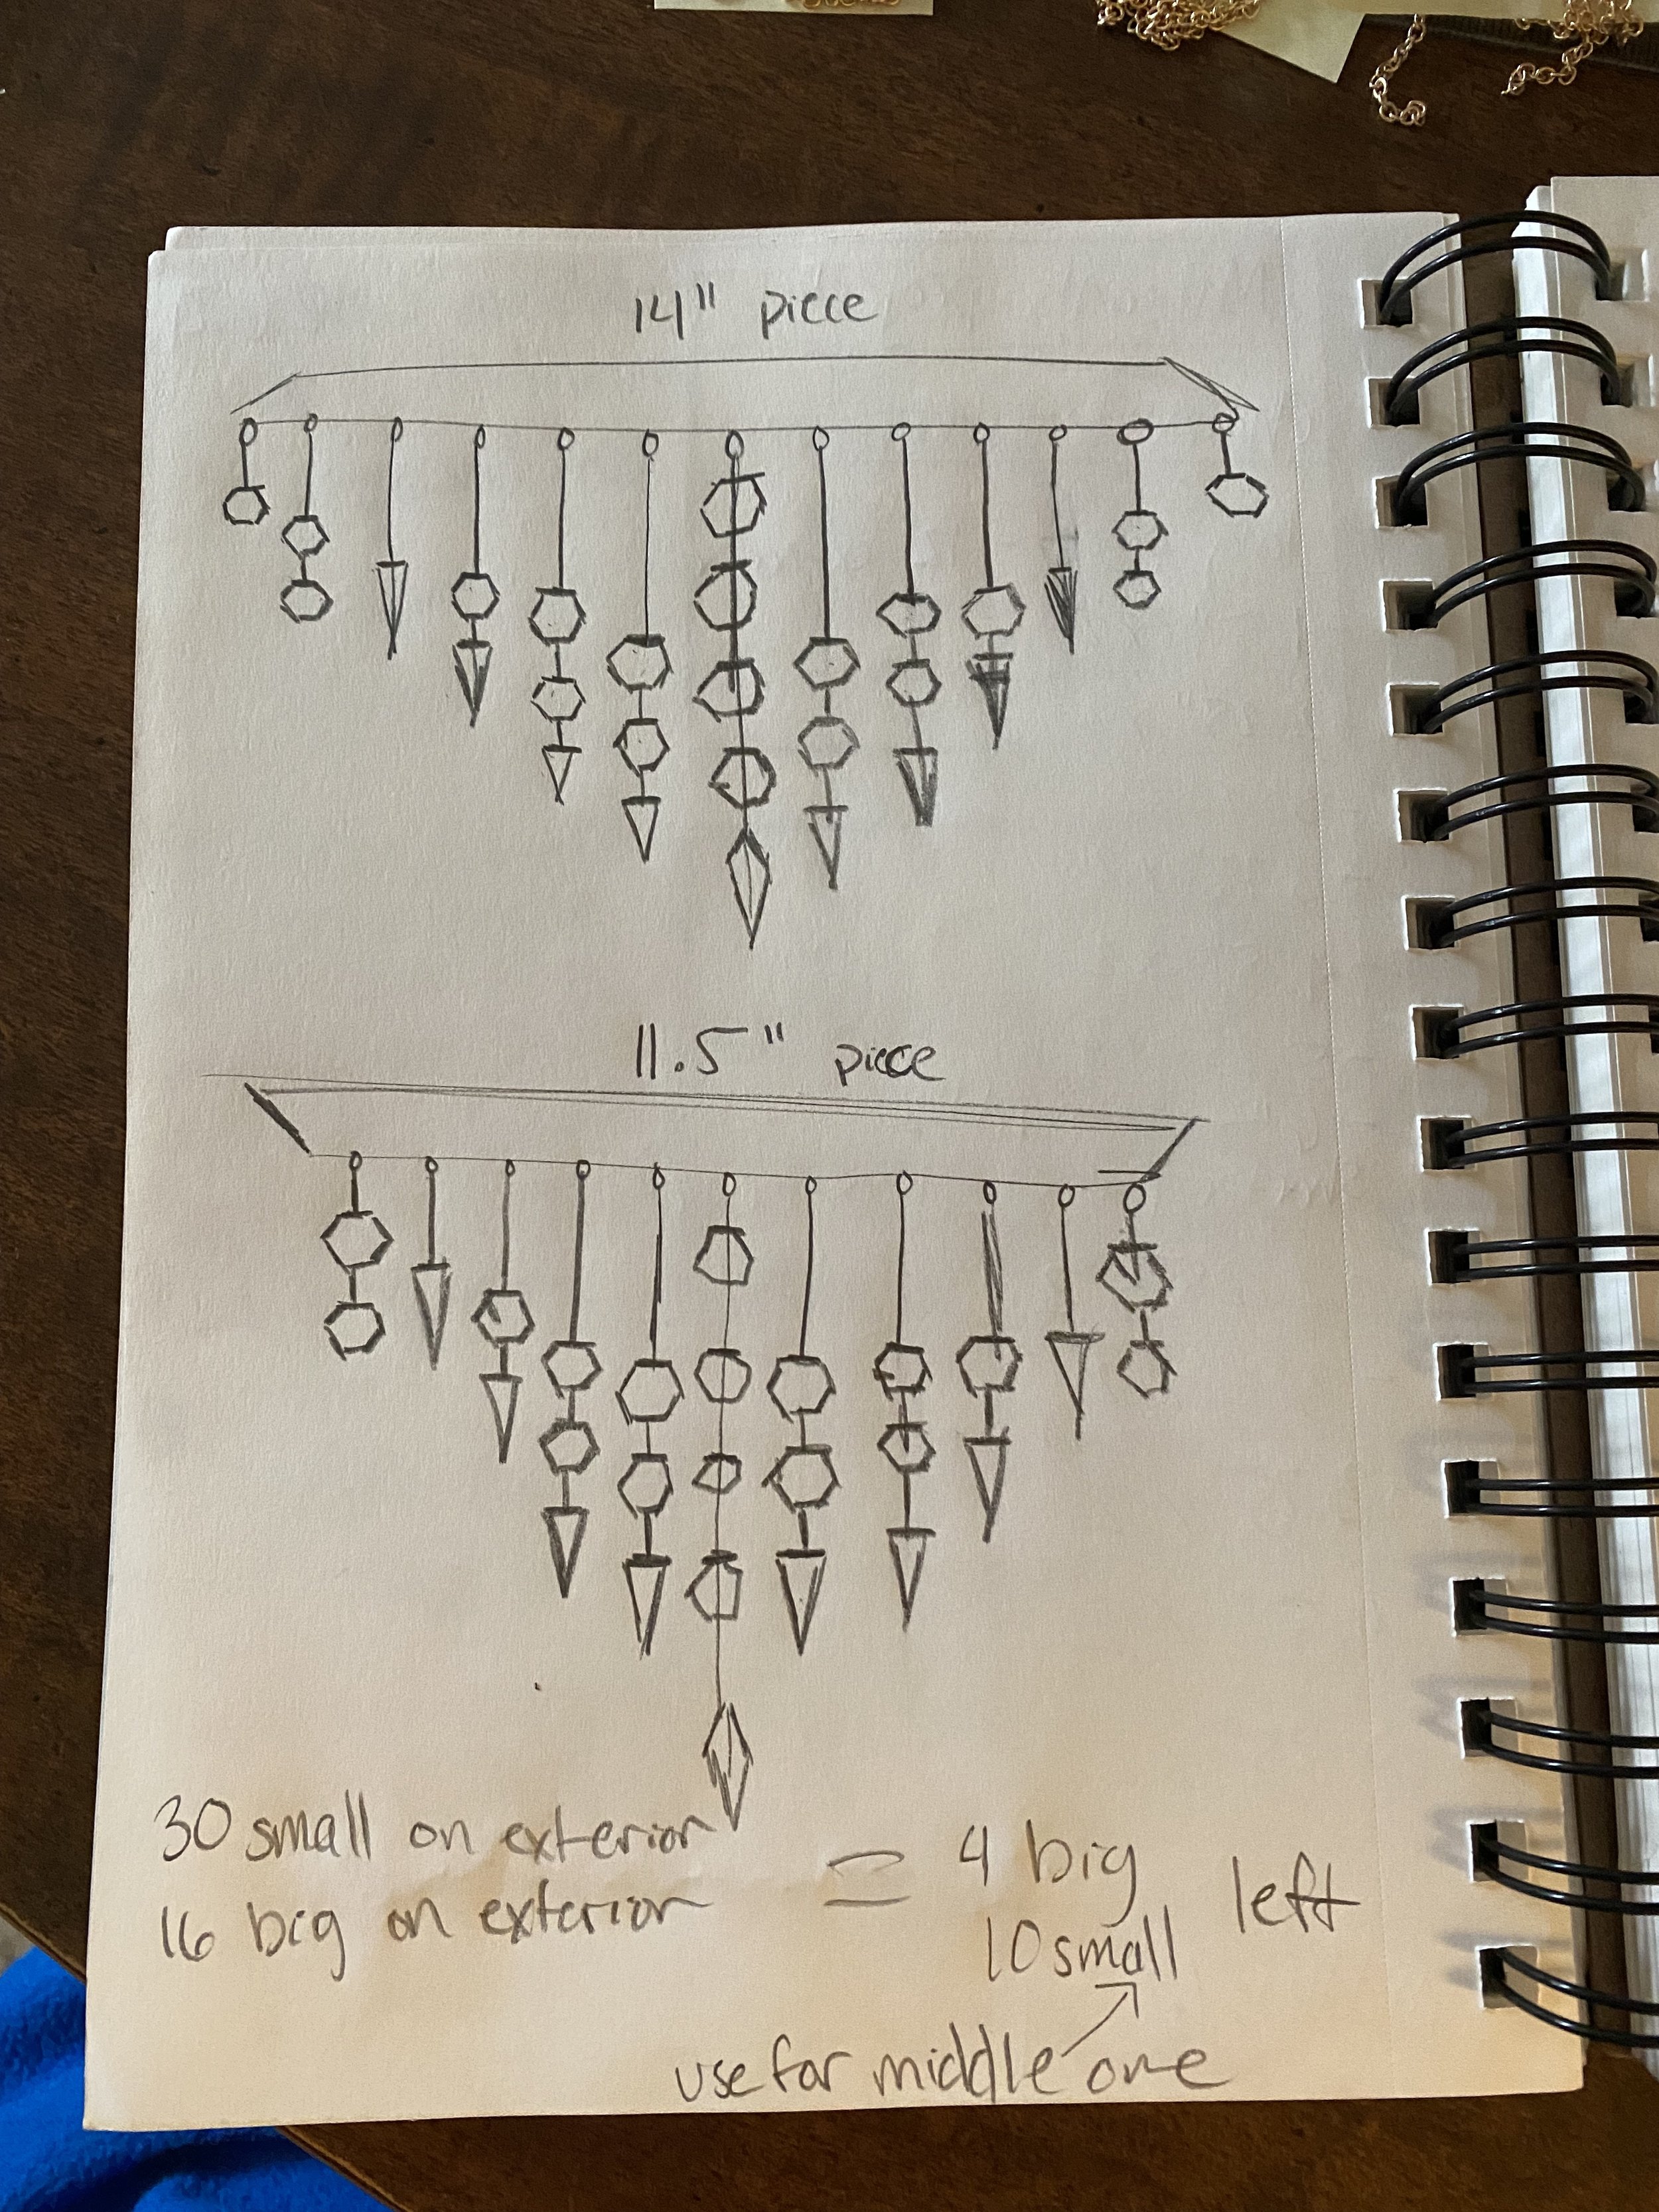 14" piece
11.5" piece
30 small on exterior
16 big on exterior
= 4 big
10 small
left
use for middle one